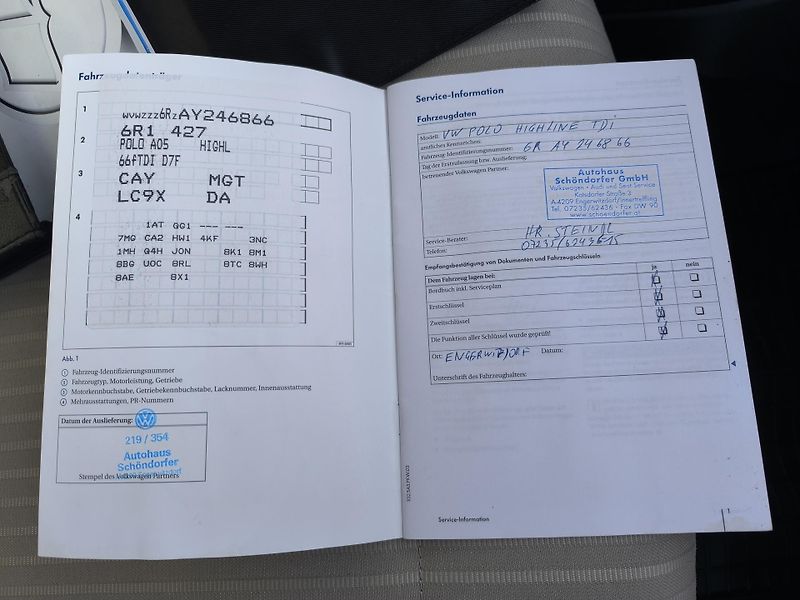 Fahrzeugdatenträger
1
WVWZZZ6RZAY246866
6R1 427
2
POLO A05 HIGHL
66fTDI D7F
3
CAY MGT
LC9X DA
4
1AT GG1 --- ---
7MG CA2 HW1 4KF 3NC
1MH Q4H JON 8K1 8M1
8BG UOC 8RL 8TC 8WH
8AE 8X1
Abb. 1
① Fahrzeug-Identifizierungsnummer
② Fahrzeugtyp, Motorleistung, Getriebe
③ Motorkennbuchstabe, Getriebekennbuchstabe, Lacknummer, Innenausstattung
④ Mehrausstattungen, PR-Nummern
Datum der Auslieferung:
219 / 354
Autohaus
Schöndorfer
Stempel des Volkswagen Partners
Service-Information
Fahrzeugdaten
Modell: VW POLO HIGHLINE TDI
amtliches Kennzeichen:
Fahrzeug-Identifizierungsnummer: 6R AY 246866
Tag der Erstzulassung bzw. Auslieferung:
betreuender Volkswagen Partner:
Autohaus
Schöndorfer GmbH
Volkswagen · Audi und Seat Service
Katsdorfer Straße 3
A-4209 Engerwitzdorf/Innertreffling
Tel. 07235/62436 · Fax DW 90
www.schoendorfer.at
Service-Berater: HR. STEINDL
Telefon: 07235/62436-15
Empfangsbestätigung von Dokumenten und Fahrzeugschlüsseln
Dem Fahrzeug lagen bei: ja nein
Bordbuch inkl. Serviceplan
Erstschlüssel
Zweitschlüssel
Die Funktion aller Schlüssel wurde geprüft!
Ort: ENGERWITZDORF Datum:
Unterschrift des Fahrzeughalters:
Service-Information
1